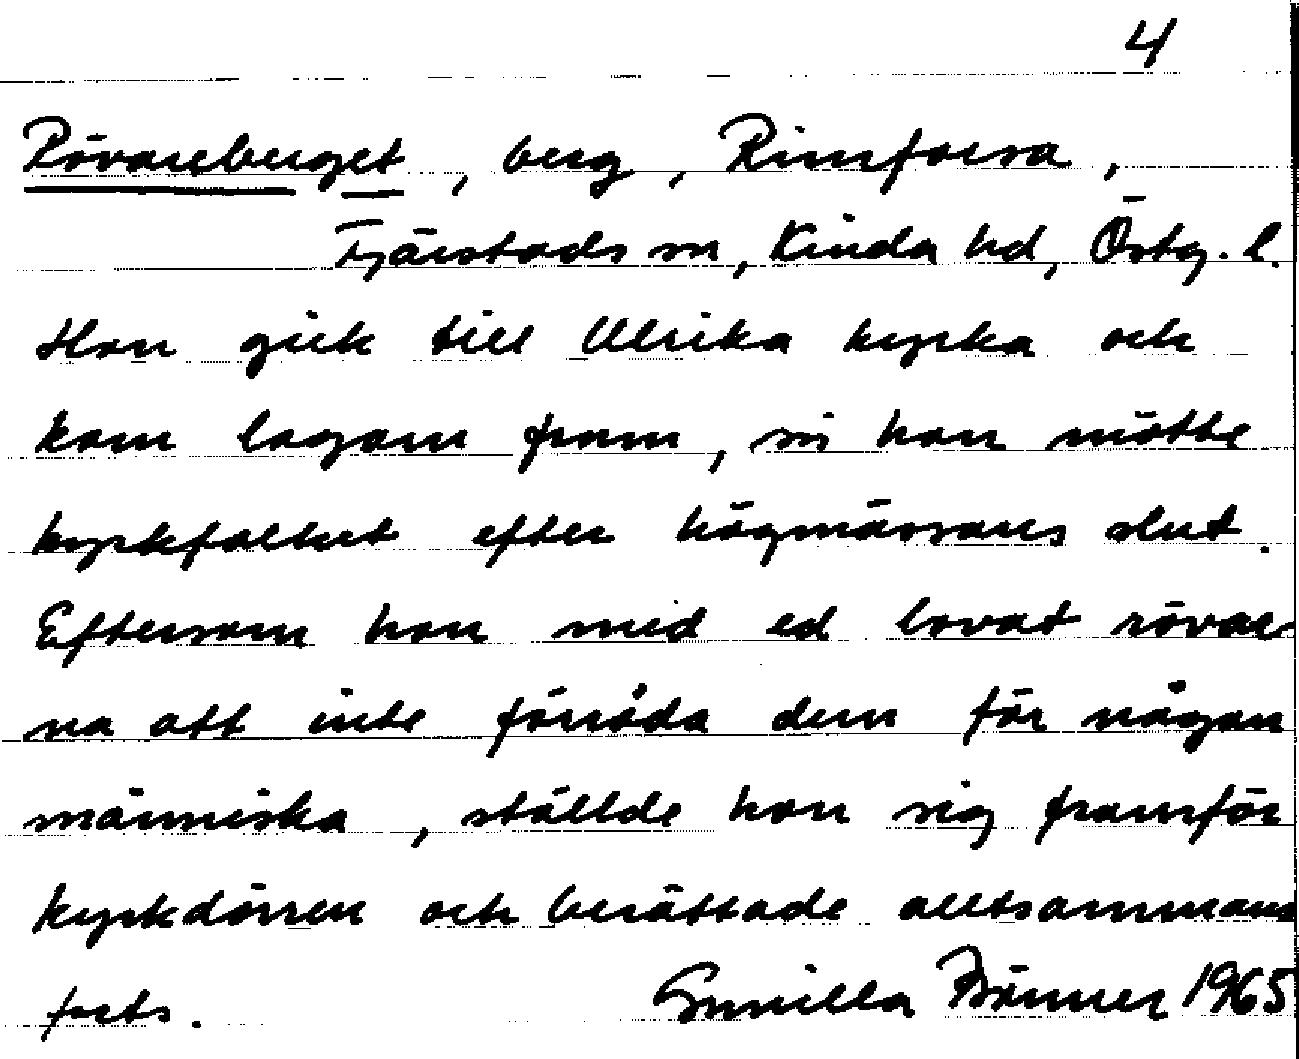 4
Rövareberget, berg, Rimforsa,
Tjärstads sn, Kinda hd, Östg. l.
Hon gick till Ulrika kyrka och
kom lagom fram, när hon mötte
kyrkfolket efter högmässans slut.
Eftersom hon med ed lovat rövar-
na att inte förråda dem för någon
människa, ställde hon sig framför
kyrkdörren och berättade alltsammans
forts. Gunilla 1965